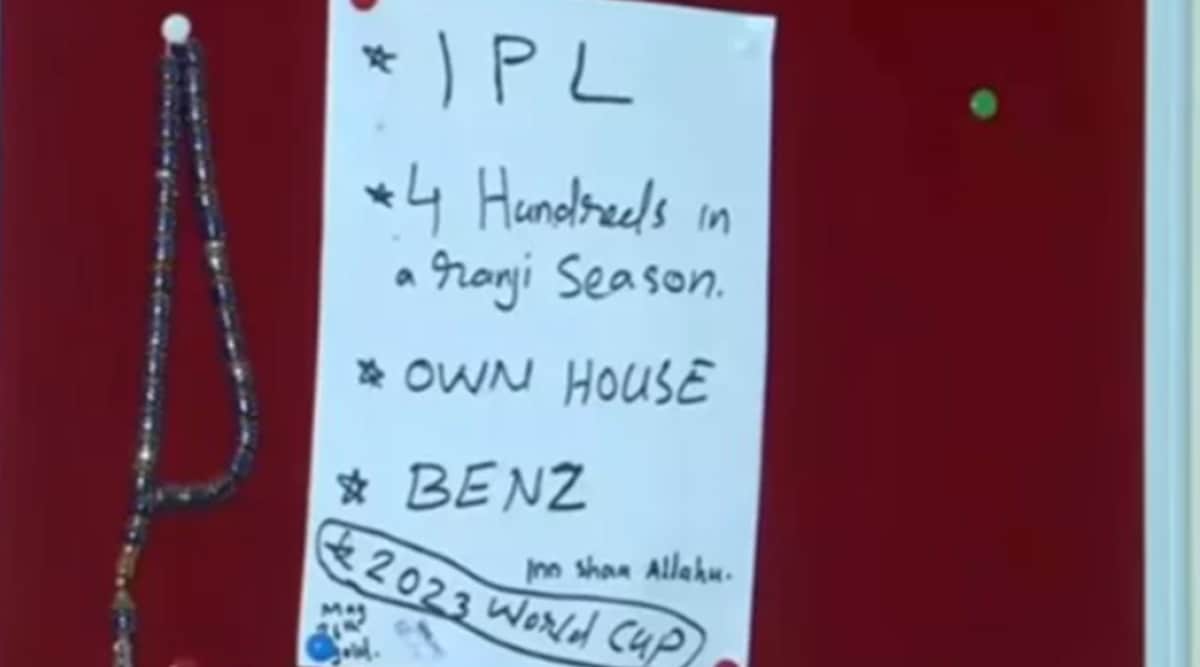 IPL
4 Hundreds in
a ranji Season.
OWN HOUSE
BENZ
Inn shaa Allahu.
2023 World CUP